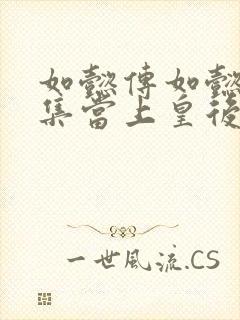 如懿傳如懿
集當上皇後
一世風流.CS